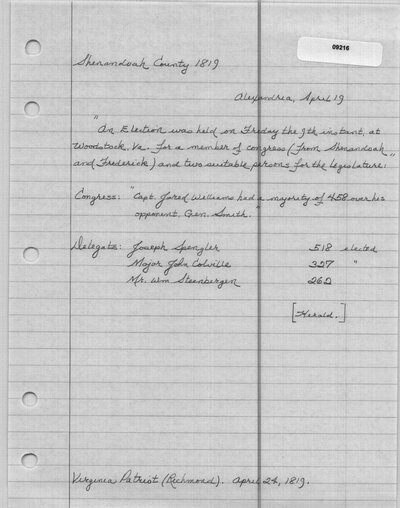 09216
Shenandoah County 1819
Alexandria, April 19
"An Election was held on Friday the 9th instant, at
Woodstock, Va. for a member of congress (from Shenandoah
and Frederick) and two suitable persons for the legislature."
Congress: "Capt. Jared Williams had a majority of 458 over his
opponent, Gen. Smith."
Delegate: Joseph Spengler 518 elected
Major John Colville 357 "
Mr. Wm Steenbergen 262
[Herald.]
Virginia Patriot (Richmond). April 24, 1819.